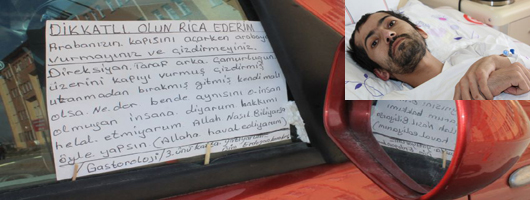 DİKKATLİ OLUN RİCA EDERİM
Arabanızın kapısını açarken arabaya
Vurmayınız ve çizdirmeyiniz.
Direksiyon Taraf arka. çamurluğun
üzerini kapıyı vurmuş çizdirmiş
utanmadan bırakmış gitmiş kendi malı
olsa. Ne.der bende aynısını e.insan
olmuyan insana. diyorum hakkımı
helal. etmiyorum Allah Nasıl Biliyorsa
öyle. yapsın (Allaha havat ediyorum)
Gastoroloji / 3.